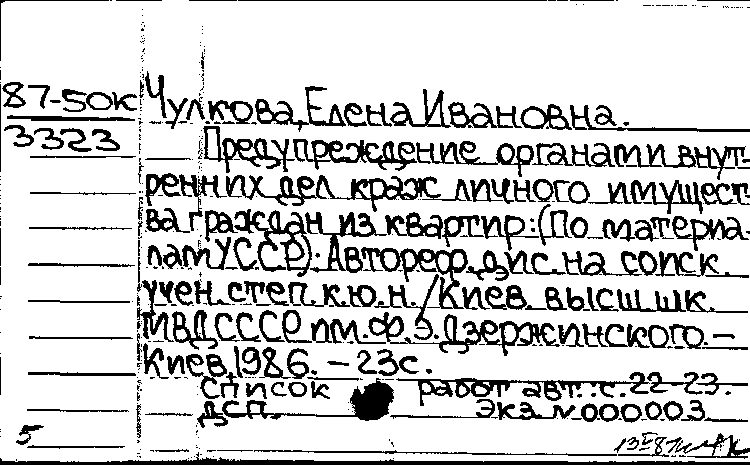 87-50К
3323
Чулкова, Елена Ивановна.
Предупреждение органами внут-
ренних дел краж личного имущест-
ва граждан из квартир: (По материа-
лам УССР): Автореф. дис. на соиск.
учен. степ. к.ю.н. /Киев. высш. шк.
МВД СССР им. Ф.Э. Дзержинского. –
Киев, 1986. – 23с.
Список работ авт.: с. 22-23.
ДСП. Экз. N000003
5